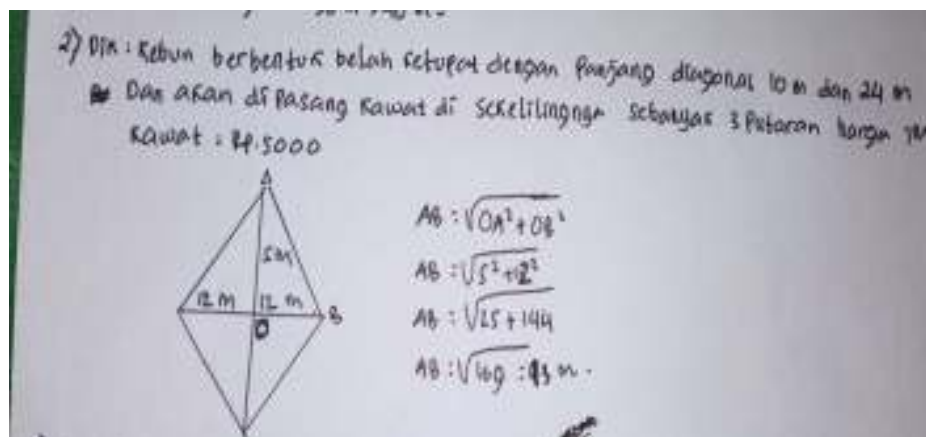 2) Dik : Kebun berbentuk belah ketupat dengan Panjang diagonal 10 m dan 24 m
Dan akan di Pasang Kawat di sekelilingnya sebanyak 3 Putaran harga
Kawat : Rp.5000
A
5m
12 m 12 m B
O
AB : √OA² + OB²
AB : √5² + 12²
AB : √25 + 144
AB : √169 : 13 m.